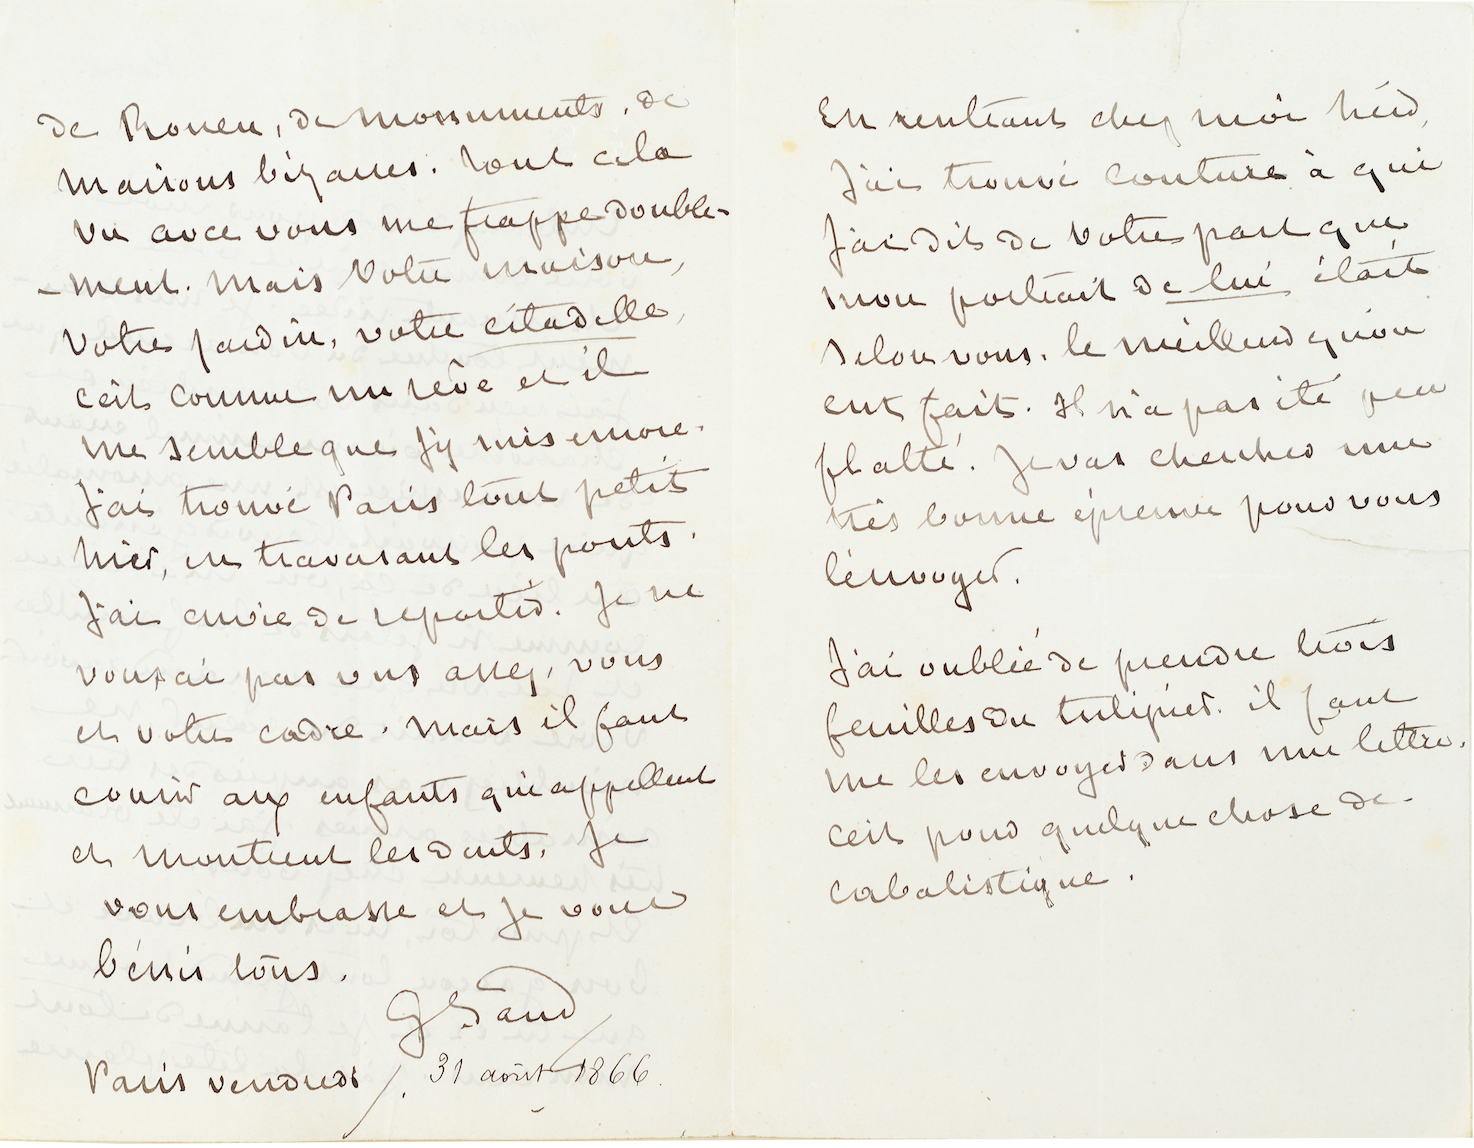 de Rouen, de monuments, de
maisons bizarres. tout cela
vu avec vous me frappe double-
-ment. Mais votre maison,
votre jardin, votre citadelle,
c'est comme un rêve et il
me semble que j'y suis encore.
J'ai trouvé Paris tout petit
hier, en traversant les ponts.
J'ai envie de repartir. Je ne
vous ai pas vus assez, vous
et votre cadre. Mais il faut
courir aux enfants qui appellent
et montrent les dents. Je
vous embrasse et je vous
bénis tous.
G Sand
Paris vendredi 31 août 1866
En rentrant chez moi hier,
J'ai trouvé Couture à qui
j'ai dit de votre part que
mon portrait de lui était
selon vous, le meilleur qu'on
eut fait. Il n'a pas été peu
flatté. Je vas chercher une
très bonne épreuve pour vous
l'envoyer.
J'ai oublié de prendre trois
feuilles du tulipier. il faut
me les envoyer dans une lettre.
c'est pour quelque chose de
cabalistique.